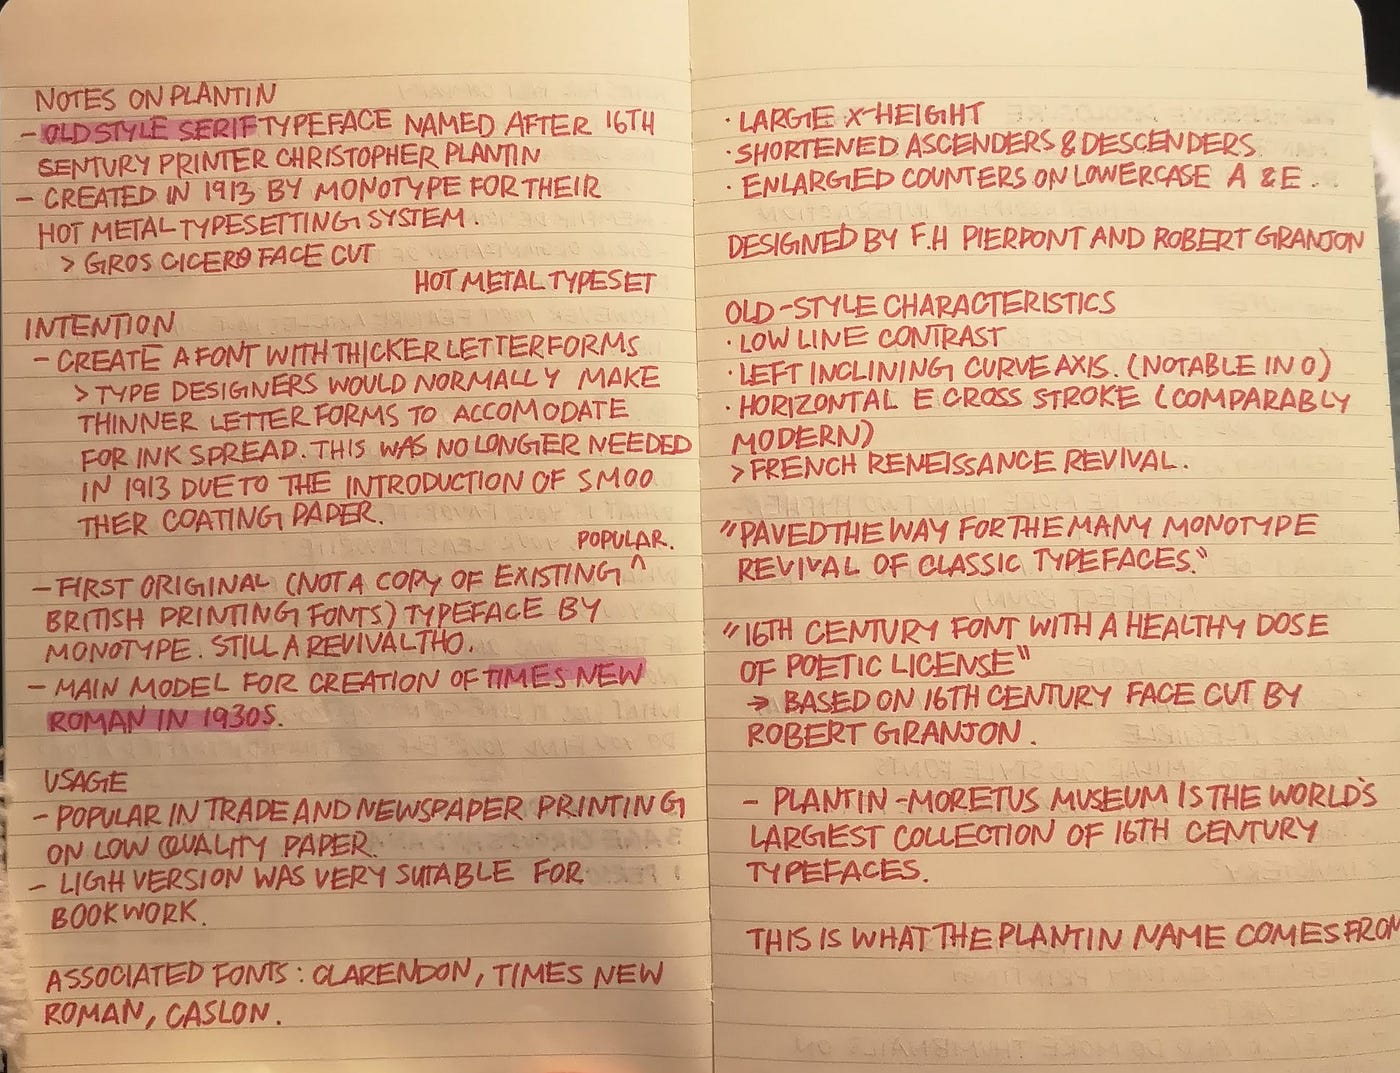 NOTES ON PLANTIN
- OLD STYLE SERIF TYPEFACE NAMED AFTER 16TH
SENTURY PRINTER CHRISTOPHER PLANTIN
- CREATED IN 1913 BY MONOTYPE FOR THEIR
HOT METAL TYPESETTING SYSTEM.
> GROS CICERO FACE CUT
HOT METAL TYPESET
INTENTION
- CREATE A FONT WITH THICKER LETTERFORMS
> TYPE DESIGNERS WOULD NORMALLY MAKE
THINNER LETTER FORMS TO ACCOMODATE
FOR INK SPREAD. THIS WAS NO LONGER NEEDED
IN 1913 DUE TO THE INTRODUCTION OF SMOO
THER COATING PAPER.
POPULAR.
- FIRST ORIGINAL (NOT A COPY OF EXISTING ^
BRITISH PRINTING FONTS) TYPEFACE BY
MONOTYPE. STILL A REVIVAL THO.
- MAIN MODEL FOR CREATION OF TIMES NEW
ROMAN IN 1930S.
USAGE
- POPULAR IN TRADE AND NEWSPAPER PRINTING
ON LOW QUALITY PAPER.
- LIGH VERSION WAS VERY SUITABLE FOR
BOOKWORK.
ASSOCIATED FONTS: CLARENDON, TIMES NEW
ROMAN, CASLON.
· LARGE X-HEIGHT
· SHORTENED ASCENDERS & DESCENDERS
· ENLARGED COUNTERS ON LOWERCASE A & E.
DESIGNED BY F.H PIERPONT AND ROBERT GRANJON
OLD-STYLE CHARACTERISTICS
· LOW LINE CONTRAST
· LEFT INCLINING CURVE AXIS. (NOTABLE IN O)
· HORIZONTAL E CROSS STROKE (COMPARABLY
MODERN)
> FRENCH RENEISSANCE REVIVAL.
"PAVED THE WAY FOR THE MANY MONOTYPE
REVIVAL OF CLASSIC TYPEFACES."
"16TH CENTURY FONT WITH A HEALTHY DOSE
OF POETIC LICENSE"
→ BASED ON 16TH CENTURY FACE CUT BY
ROBERT GRANJON.
- PLANTIN-MORETUS MUSEUM IS THE WORLD'S
LARGEST COLLECTION OF 16TH CENTURY
TYPEFACES.
THIS IS WHAT THE PLANTIN NAME COMES FROM